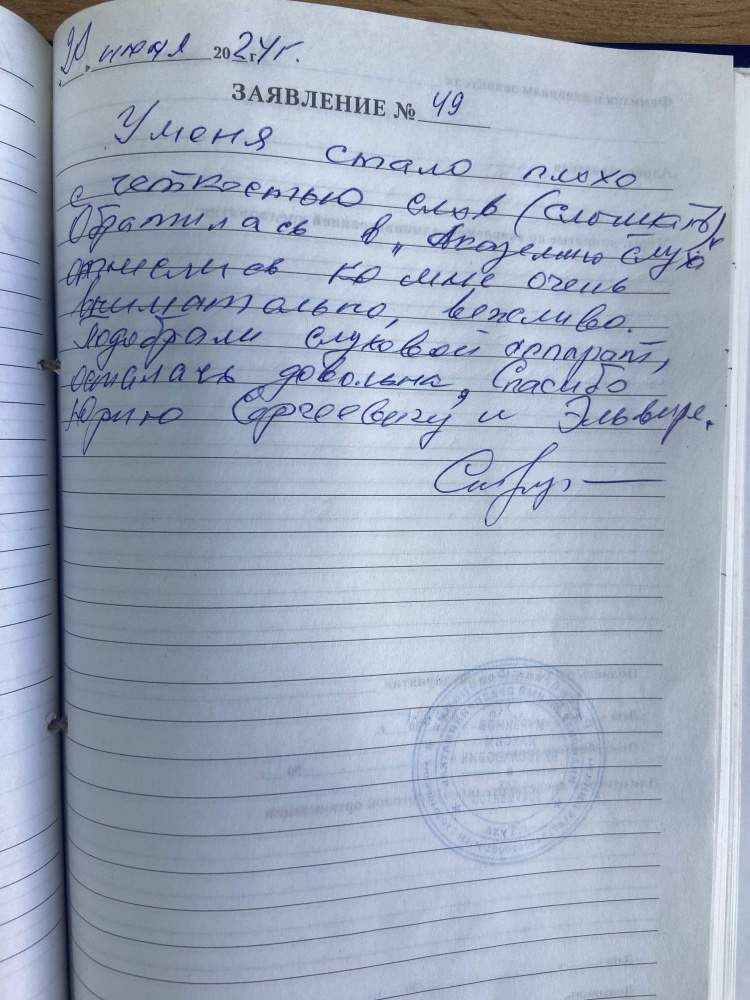 июня 2024г.
ЗАЯВЛЕНИЕ № 49
У меня стало плохо
с четкостью слов (слышать).
Обратилась в "Академию слуха"
отнеслись ко мне очень
внимательно, вежливо.
Подобрали слуховой аппарат,
осталась довольна, Спасибо
Юрию Сергеевичу и Эльвире.